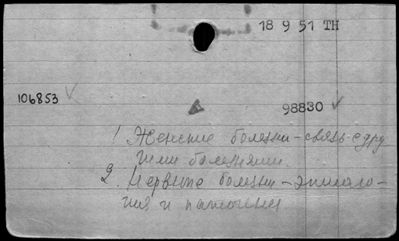 18 9 51 TH
106853 ✓
98830 ✓
1 Женские болезни – связь с дру
гими болезнями.
2. Нервные болезни – этиоло-
гия и патогенез